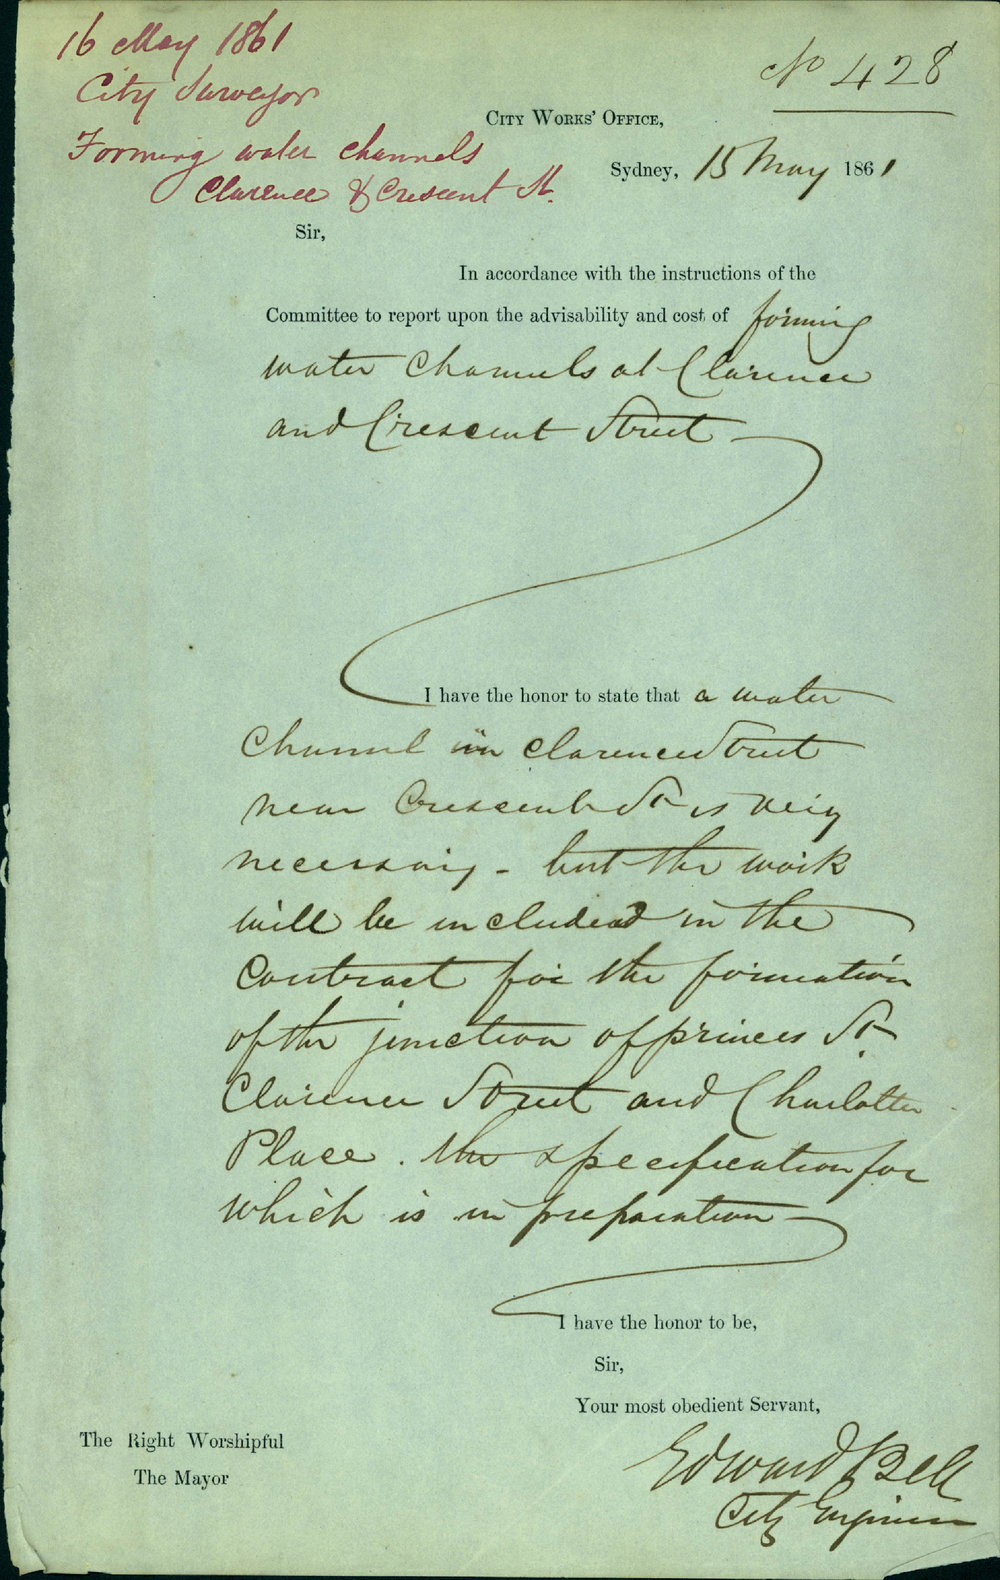 16 May 1861
City Surveyor
Forming water channels
Clarence & Crescent St.
No 428
City Works' Office,
Sydney, 15 May 1861
Sir,
In accordance with the instructions of the
Committee to report upon the advisability and cost of forming
water Channels at Clarence
and Crescent Street
I have the honor to state that a water
Channel in Clarence Street
near Crescent St is very
necessary - but the work
will be included in the
Contract for the formation
of the junction of princes St
Clarence Street and Charlotte
Place. the specification for
which is in preparation
I have the honor to be,
Sir,
Your most obedient Servant,
Edward Bell
City Engineer
The Right Worshipful
The Mayor